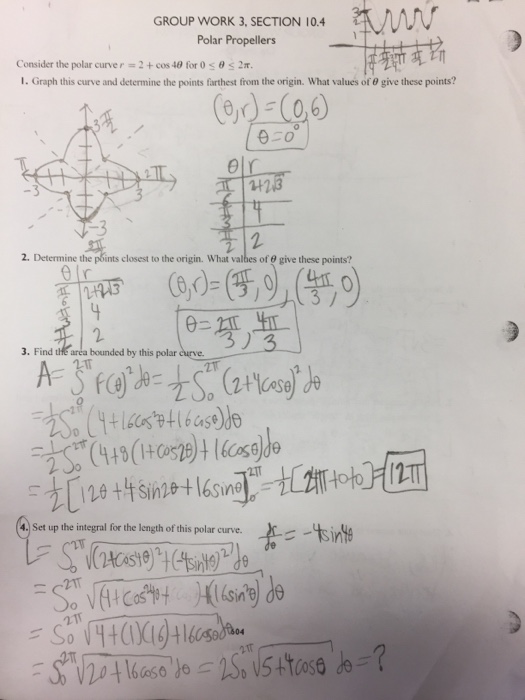 GROUP WORK 3, SECTION 10.4
Polar Propellers
Consider the polar curve r = 2 + cos 4θ for 0 ≤ θ ≤ 2π.
1. Graph this curve and determine the points farthest from the origin. What values of θ give these points?
(θ,r)=(0,6)
θ=0°
θ|r
π/6 2+2√3
π/3 4
π/2 2
π -3 3 2π
3 π/2
-3
3π/2
2. Determine the points closest to the origin. What values of θ give these points?
θ|r
π/6 2+2√3
π/3 4
π/2 2
(θ,r)=(2π/3,0),(4π/3,0)
θ=2π/3, 4π/3
3. Find the area bounded by this polar curve.
A=∫₀^2π F(θ)²dθ=½∫₀^2π (2+4cosθ)²dθ
=½∫₀^2π (4+16cos²θ+16cosθ)dθ
=½∫₀^2π (4+8(1+cos2θ)+16cosθ)dθ
=½[12θ+4sin2θ+16sinθ]₀^2π=½[24π+0+0]=12π
4. Set up the integral for the length of this polar curve.
dr/dθ=-4sin4θ
L=∫₀^2π √(2+cos4θ)²+(-4sin4θ)² dθ
=∫₀^2π √(4+cos²4θ+ )+(16sin²θ) dθ
=∫₀^2π √4+(1)(16)+16cosθ dθ
=∫₀^2π √20+16cosθ dθ=2∫₀^2π √5+4cosθ dθ=?